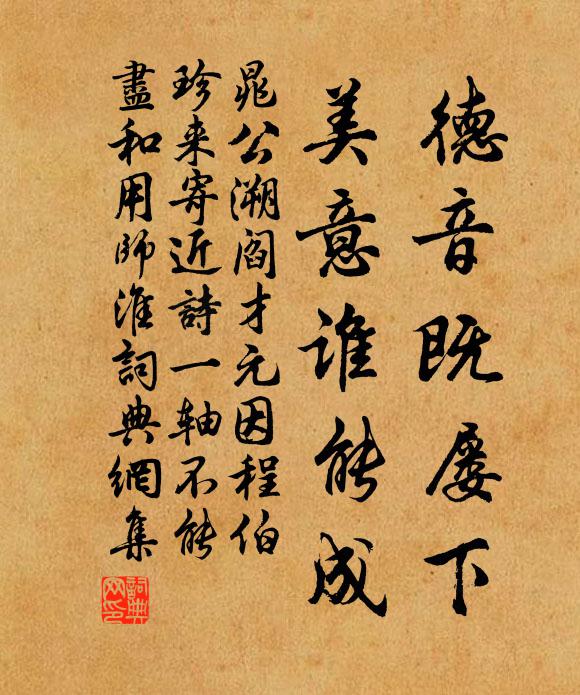 德音既屡下
美意谁能成
晁公溯阎才元因程伯
珍来寄近詩一轴不能
盡和用師淮詞典網集
詞典网印